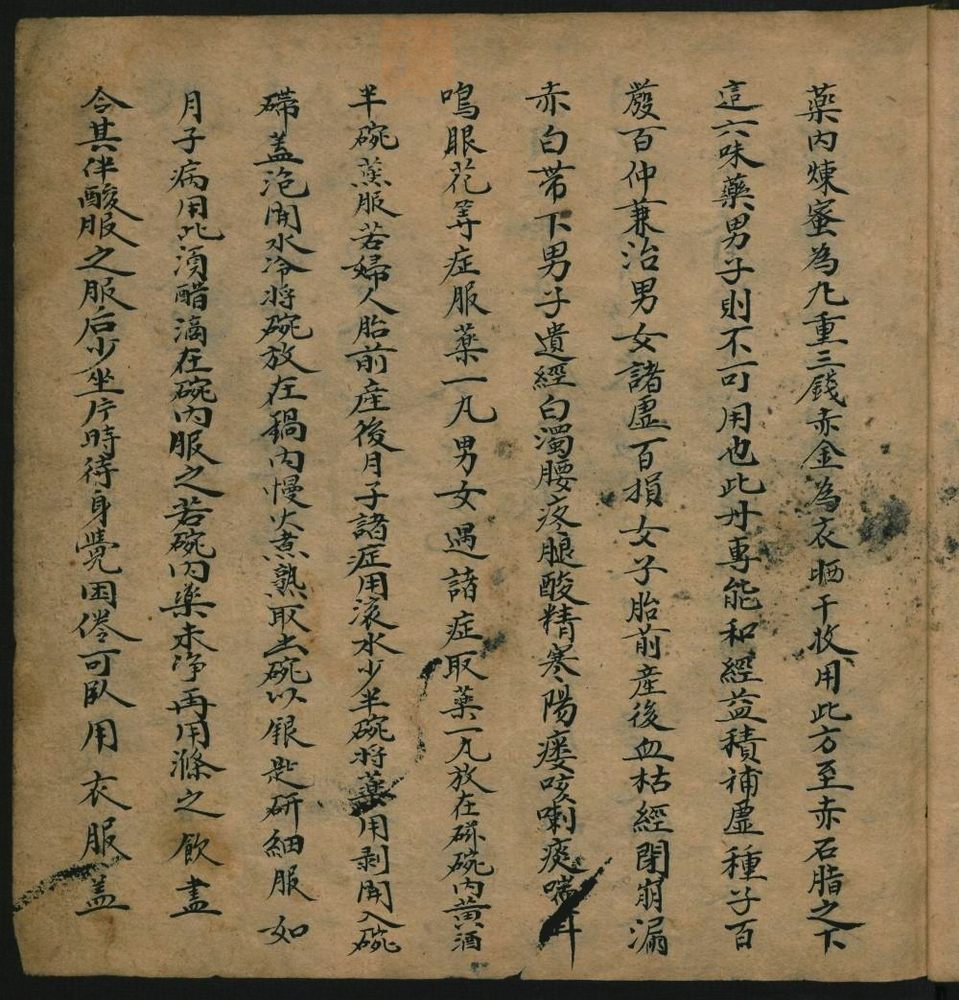 藥內煉蜜為丸重三錢赤金為衣晒干收用此方至赤石脂之下
這六味藥男子則不可用也此丹專能和經益積補虛種子百
發百仲兼治男女諸虛百損女子胎前產後血枯經閉崩漏
赤白帶下男子遺經白濁腰疼腿酸精寒陽痿咳喇痰喘耳
鳴眼花等症服藥一丸男女遇諸症取藥一丸放在磁碗內黃酒
半碗蒸服若婦人胎前產後月子諸症用滾水少半碗將藥用剥開入碗
碲盖泡開水冷將碗放在鍋內慢火煮熟取出碗以銀匙研細服如
月子病用此湏醋滴在碗內服之若碗內藥未淨再用滌之飲盡
令其伴酸服之服后少坐片時待身覺困倦可臥用衣服盖